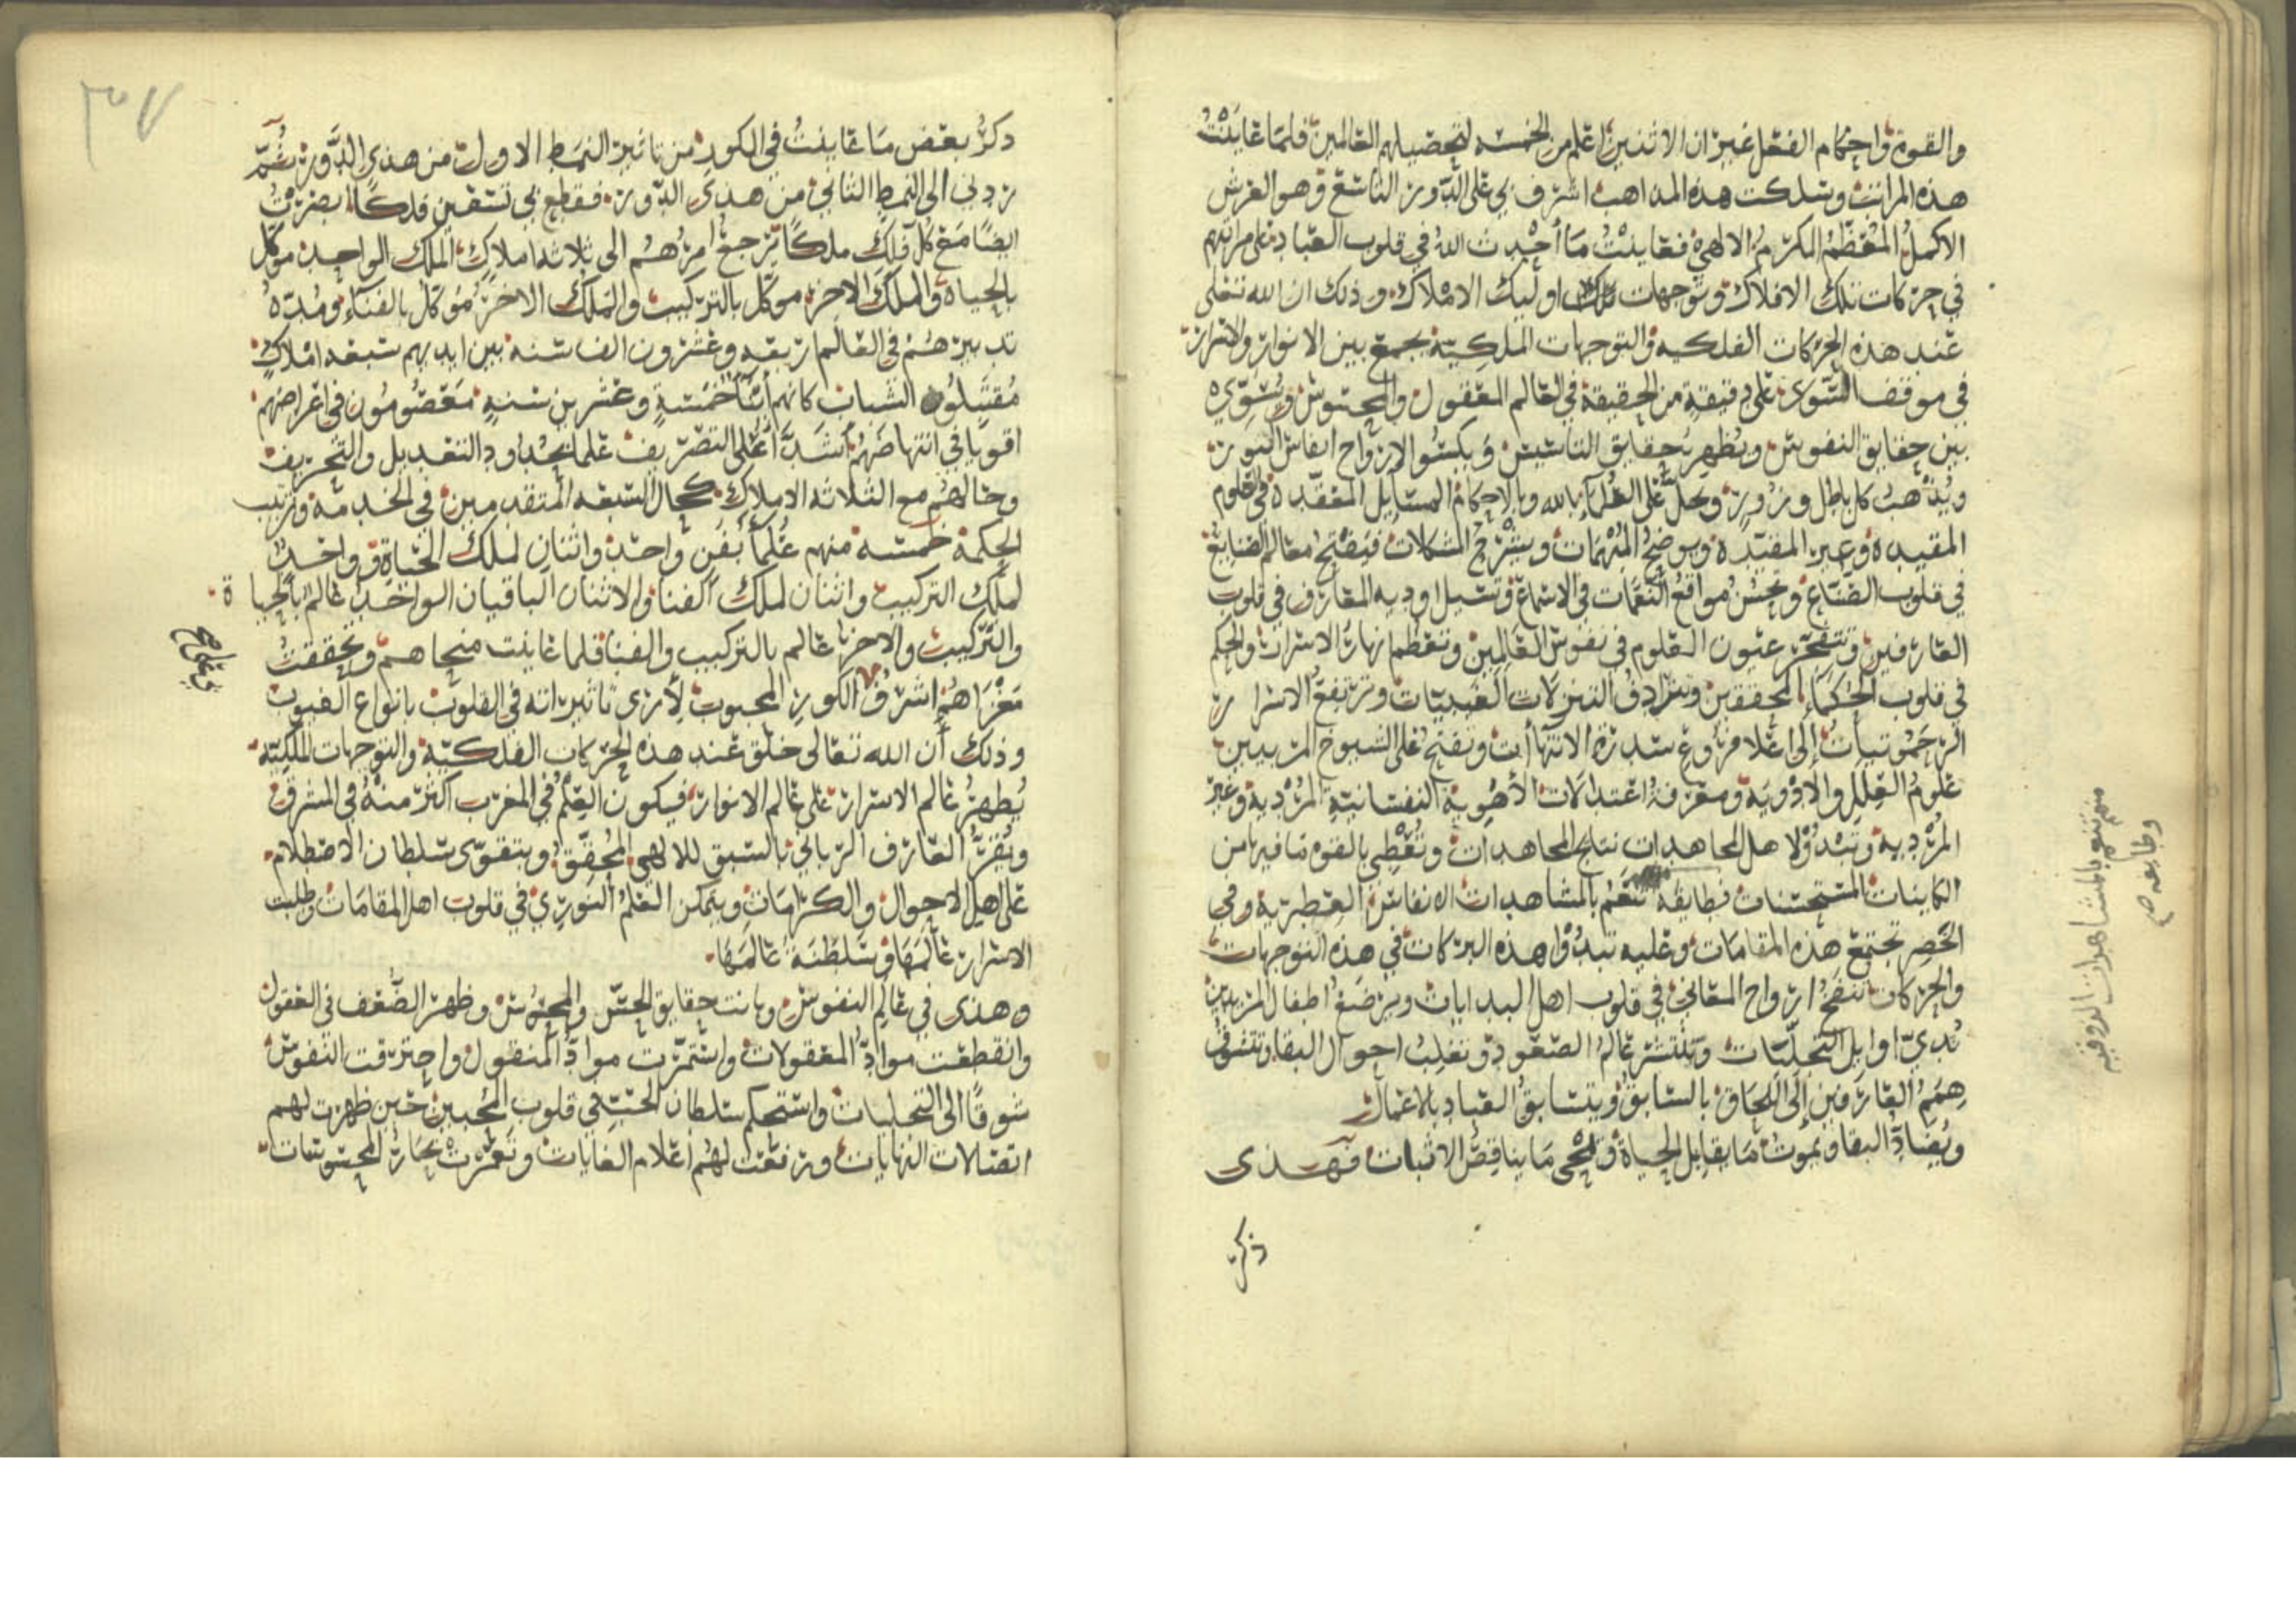 والقوة واحكام الفعل غير ان الاثنين اعلم من الخمسه لتحصيلهم العالمين فلما عاينت
هذه المراتب وسلكت هذه المذاهب اشرف بي على الدور التاسع وهو العرش
الاكمل المعظم المكرم الالهي فعاينت ما احدث الله في قلوب العباد على مراتبهم
في حركات تلك الافلاك وتوجهات اوليك الاملاك وذلك ان الله تعلى
عند هذه الحركات الفلكيه والتوجهات الملكية يجمع بين الانوار والاسرار
في موقف السوى على دقيقة من الحقيقة في العالم المعقول والمحسوس ويسوي
بين حقايق النفوس ويظهر حقايق التاسيس ويكسوا الارواح انفاس النور
ويذهب كل باطل وزور ويحل على العلماء بالله وبالاحكام المسايل المعقدة في العلوم
المقيده وغير المقيدة ويوضح المبهمات ويشرح المشكلات فيفتح معالم الصنايع
في قلوب الصناع ويحسن مواقع النغمات في الاسماع وتسيل اوديه المعارف في قلوب
العارفين وتتفجر عيون العلوم في نفوس العالمين وتعظم انهار الاسرار والحكم
في قلوب الحكماء المحققين وتترادف التنزلات الغيبيات وترتفع الاسرار
الرحموتيات إلى اعلا فروع سدرة الانتهاآت وتفتح على الشيوخ المربيين
علوم العلل والادوية ومعرفة اعتدالات الأهوية النفسانية المردية وغير
المردية وتبدوا لاهل المجاهدات نتايج المجاهدات وتعطي بالقوة ما فيها من
الكاينات المستحسنات فطايفة تتنعم بالمشاهدات الانفاس العطرية وفي
الخضر تجتمع هذه المقامات وعليه تبدوا هذه البركات في هذه التوجهات
والحركات تنفخ ارواح المعاني في قلوب اهل البدايات ويرضع اطفال المريدين
ثدي اوايل التجليات وينتشر عالم الصعود وتغلب احوال البقا وتتشوف
همم العارفين إلى اللحاق بالسابق ويتسابق العباد بالاعمال
ويضاد البقا ويموت ما يقابل الحياة ويمحى ما يناقض الاثبات فهذى
ذكر
منهم تتنعم بالمشاهدات الذوقيه
وطايفه صح
ذكر بعض ما عاينت في الكور من تاثير النمط الاول من هذى الدور ثم
زج بي الى النمط الثاني من هذى الدور فقطع بي تسعين فلكا ابصرت
ايضا مع كل فلك ملكا ترجع امرهم الى ثلاثه املاك الملك الواحد موكل
بالحياة والملك الاخر موكل بالتركيب والملك الاخر موكل بالفناء ومدة
تدبيرهم في العالم اربعه وعشرون الف سنه بين ايديهم سبعه املاك
مقتبلون الشباب كانهم ابنا خمسة وعشرين سنه معصومون في اغراضهم
اقويا في انتهاضهم اشدا على التصريف علما بحدود التعديل والتحريف
وحالهم مع الثلاثه الاملاك كحال السبعه المتقدمين في الخدمة وترتيب
الحكمة خمسه منهم علما بفن واحد واثنان لملك الحياة وواحد
لملك التركيب واثنان لملك الفنا والاثنان الباقيان الواحد عالم بالحيا ة
والتركيب والاخر عالم بالتركيب والفنا فلما عاينت منحاهم وتحققت
مغزاهم اشرف الكور المحبوب لأرى تاثيراته في القلوب بانواع الغيوب
وذلك أن الله تعالى خلق عند هذه الحركات الفلكية والتوجهات الملكية
يظهر عالم الاسرار على عالم الانوار فيكون العلم في المغرب اكثر منه في المشرق
ويقر العارف الرباني بالسبق للالهي المحقق ويتقوى سلطان الاصطلام
على اهل الاحوال والكرامات ويتمكن العلم النوري في قلوب اهل المقامات وطلبت
الاسرار عالمها وسلطنة عالمها
وهذى في عالم النفوس وبانت حقايق الحس والمحسوس وظهر الضعف في العقول
وانقطعت مواد المعقولات واستمرت مواد المنقول واحترقت النفوس
شوقا الى التجليات واستحكم سلطان الحب في قلوب المحبين حين ظهرت لهم
اتصالات النهايات ورفعت لهم اعلام الغايات وتعمرت بحار المحسوسات